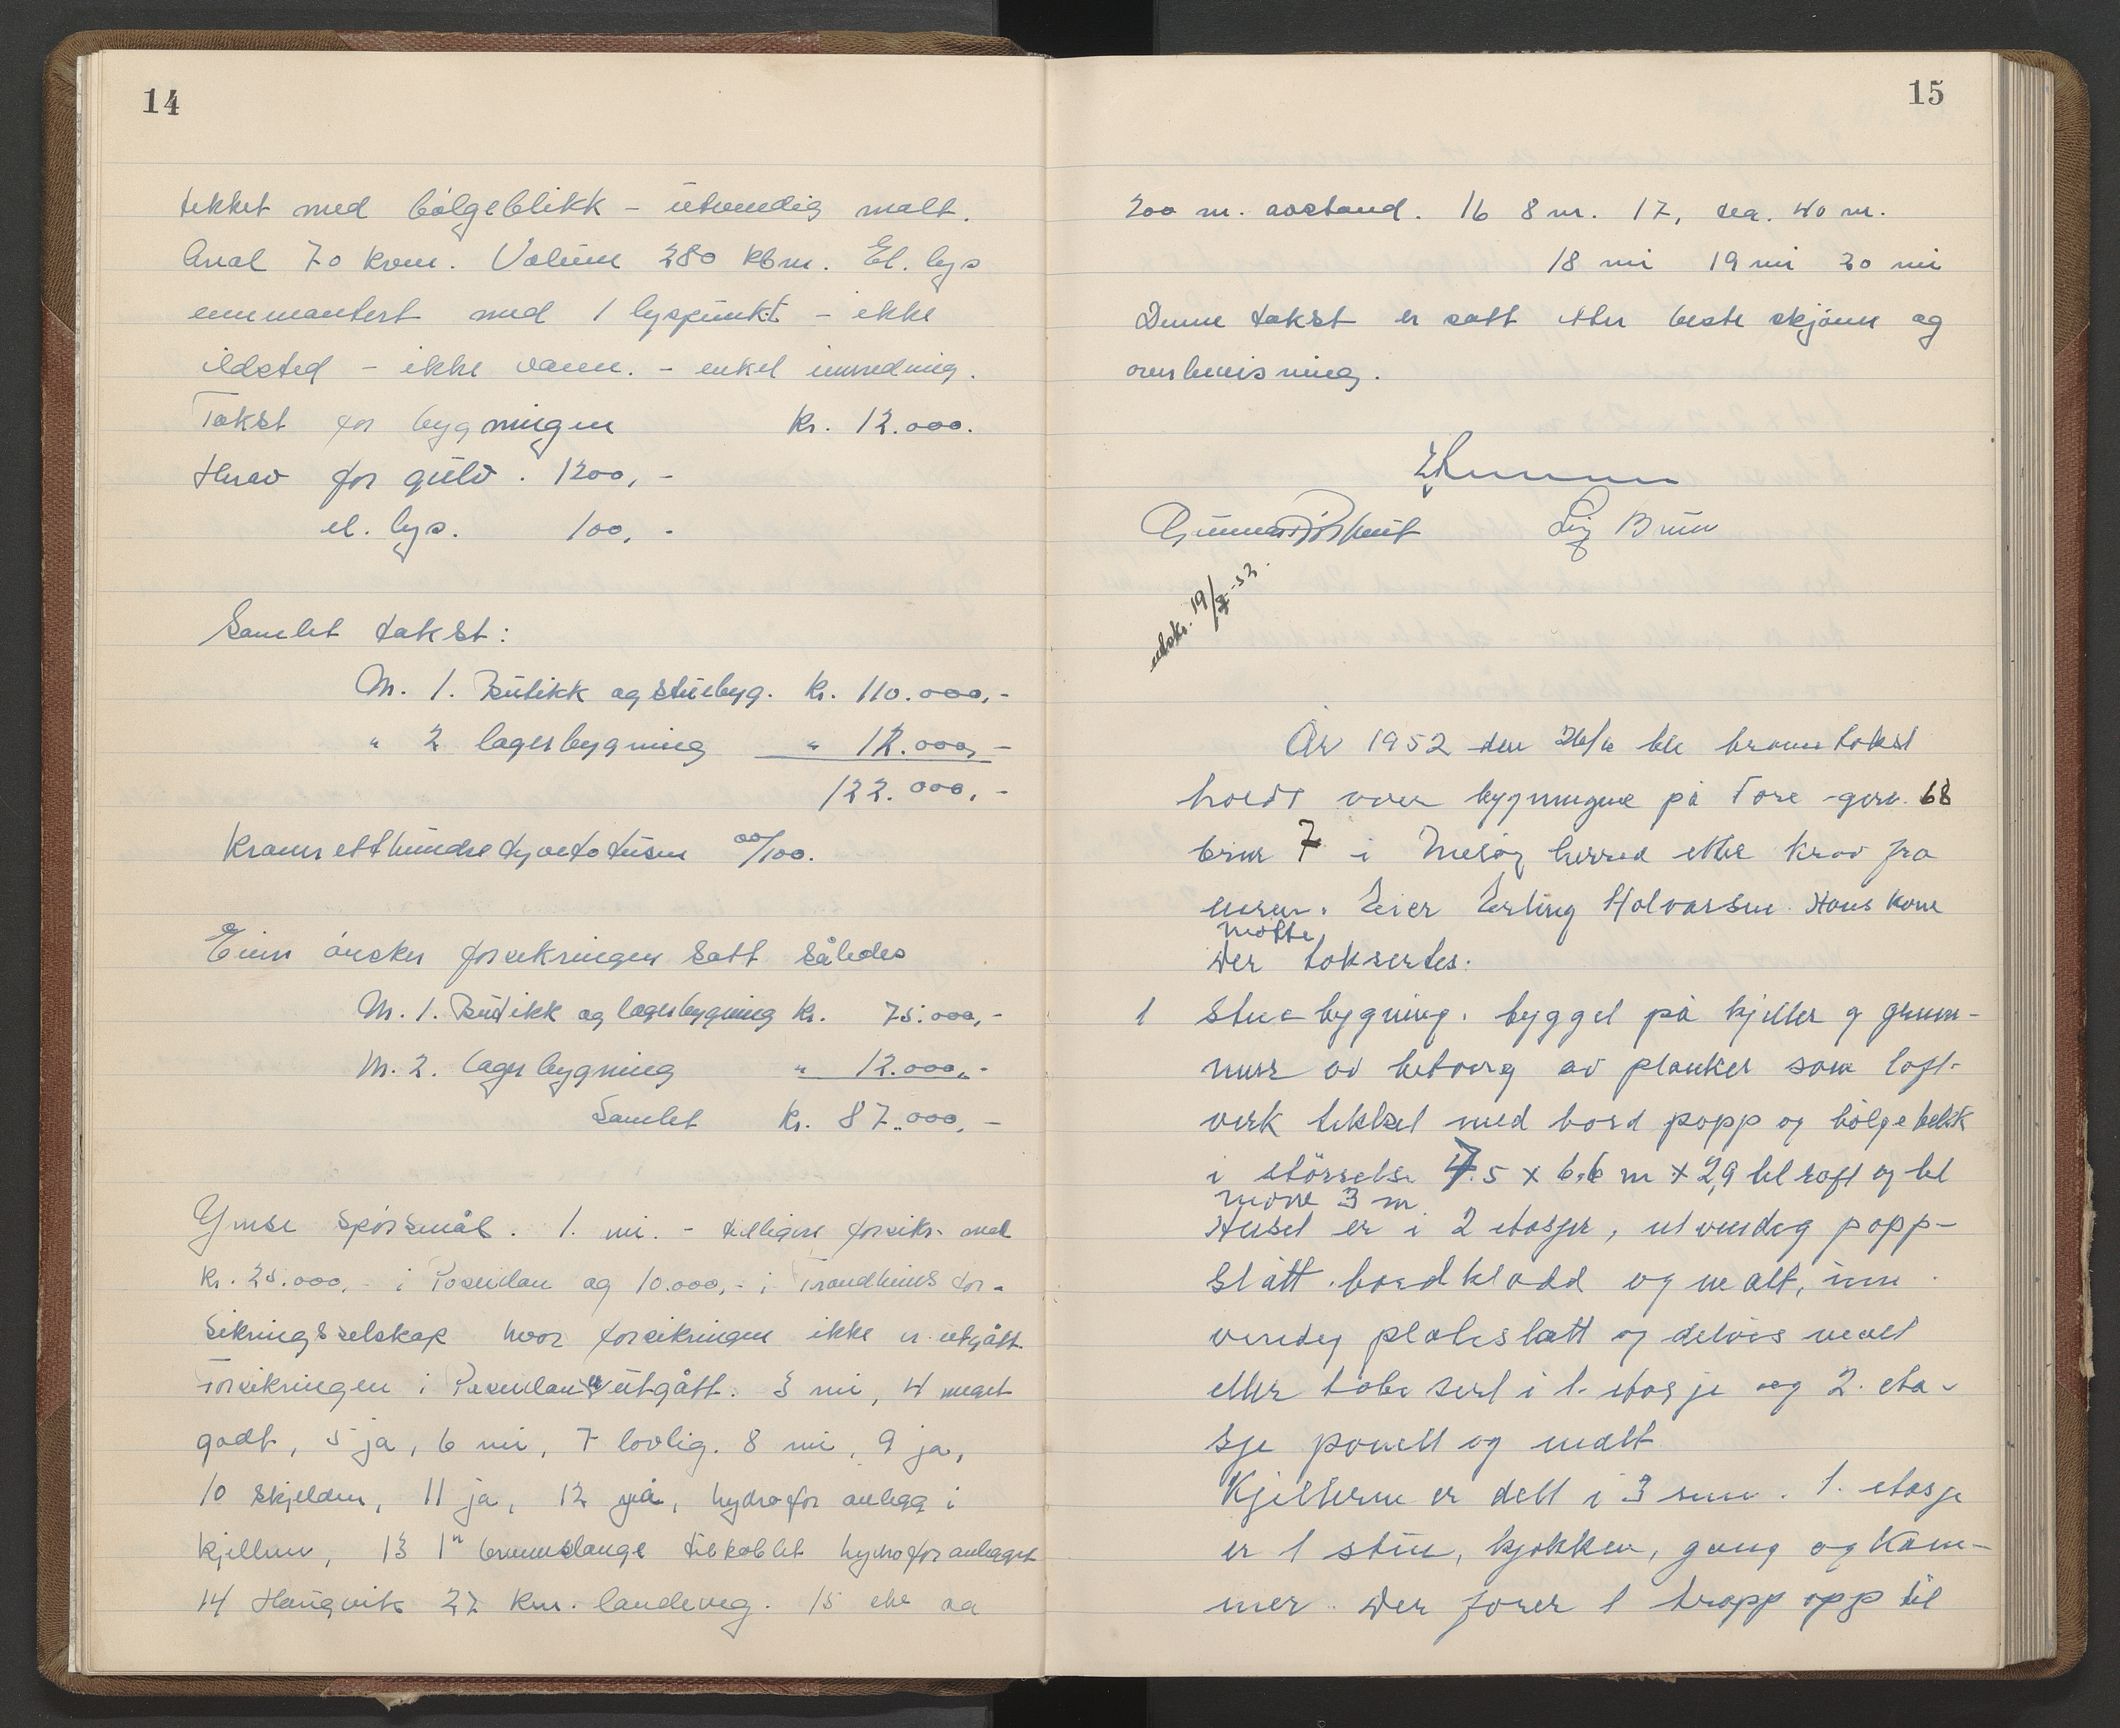 14
tekket med bølgeblikk - utvendig malt.
Areal 70 kvm. Volum 280 kbm. El. lys
emmontert med 1 lyspunkt - ikke
ildsted - ikke vann. - enkel innredning.
Takst for bygningen kr. 12.000.
Herav for gulv. 1200,-
el. lys. 100,-
Samlet takst:
Nr. 1. Butikk og stuebyg. kr. 110.000,-
" 2 lagerbygning " 12.000,-
122.000,-
Kroner etthundretyvetotusen 00/100.
Eieren ønsker forsikringen satt således
Nr. 1. Butikk og lagerbygning kr. 75.000,-
Nr. 2. lagerbygning " 12.000,-
Samlet kr. 87.000,-
Ymse spørsmål. 1. nei. - tidligere forsikr. med
kr. 25.000,- i Poseidon og 10.000,- i Trondheims for-
sikringsselskap hvor forsikringen ikke er utgått.
Forsikringen i Poseidon er utgått. 3 nei, 4 meget
godt, 5 ja, 6 nei, 7 lovlig. 8 nei, 9 ja,
10 skjelden, 11 ja, 12 ja, hydrofor anlegg i
kjelleren, 13 1" brannslange tilkoblet hydroforanlegget
14 Haugvik 27 km. landeveg. 15 ca
15
200 m. avstand. 16 8 m. 17, ca. 40 m.
18 nei 19 nei 20 nei
Denne takst er satt etter beste skjønn og
overbevisning.
Brun
utskr. 19/ -52.
År 1952 den 26/6 ble branntakst
holdt over bygningene på Tore gnr. 68
brnr 7 i herred etter krav fra
eieren. Eier Erling Halvorsen. Hans kone
møtte
Der taksertes.
1 Stuebygning. bygget på kjeller og grunn-
mur av betong av planker som loft-
verk tekket med bord papp og bølgeblikk
i størrelse 7.5 x 6.6 m x 2,9 til raft og til
møne 3 m
Huset er i 2 etasjer, utvendig papp-
slått. bordkladd og malt, inn
vendig plateslått og delvis malt
eller tape sert i 1. etasje og 2. eta-
sje panelt og malt
Kjelleren er delt i 3 rum. 1. etasje
er 1 stue, kjøkken, gang og kam-
mer. Der fører 1 trapp opp til